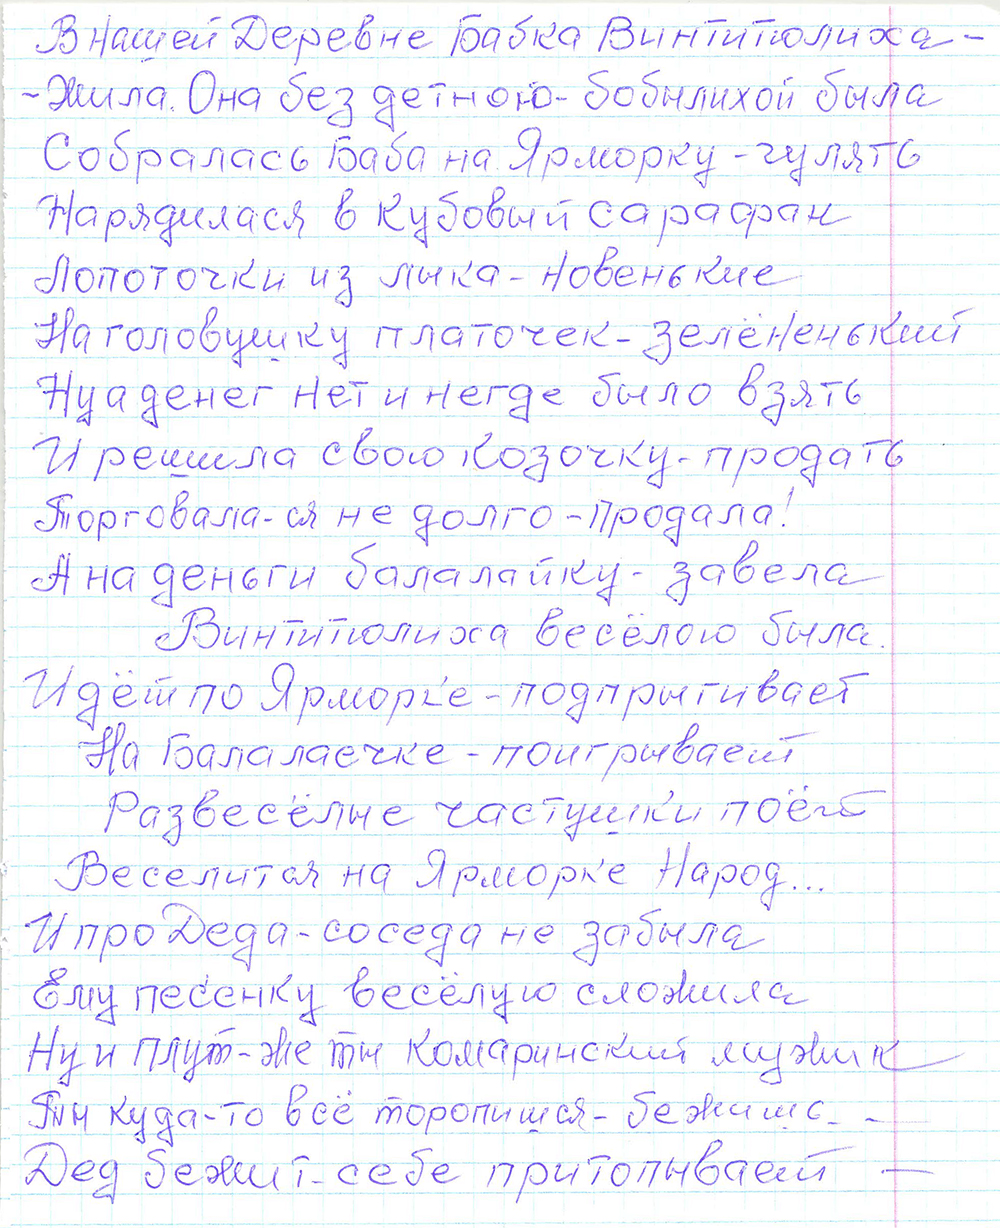 В нашей Деревне Бабка Винтитюлиха -
- Жила. Она без детною - бобылихой была
Собралась Баба на Ярморку - гулять
Нарядилася в кубовый сарафан
Лопоточки из лыка - новенькие
На головушку платочек - зелёненький
Ну а денег нет и негде было взять
И решила свою козочку - продать
Торговала-ся не долго - продала!
А на деньги балалайку - завела
Винтитюлиха весёлою была.
Идёт по Ярморке - подпрыгивает
На Балалаечке - поигрывает
Развесёлые частушки поёт
Веселится на Ярморке Народ...
И про Деда - соседа не забыла
Ему песенку весёлую сложила
Ну и плут - же ты комаринский мужик
Ты куда-то всё торопишся - бежишь - -
Дед бежит - себе притопывает —